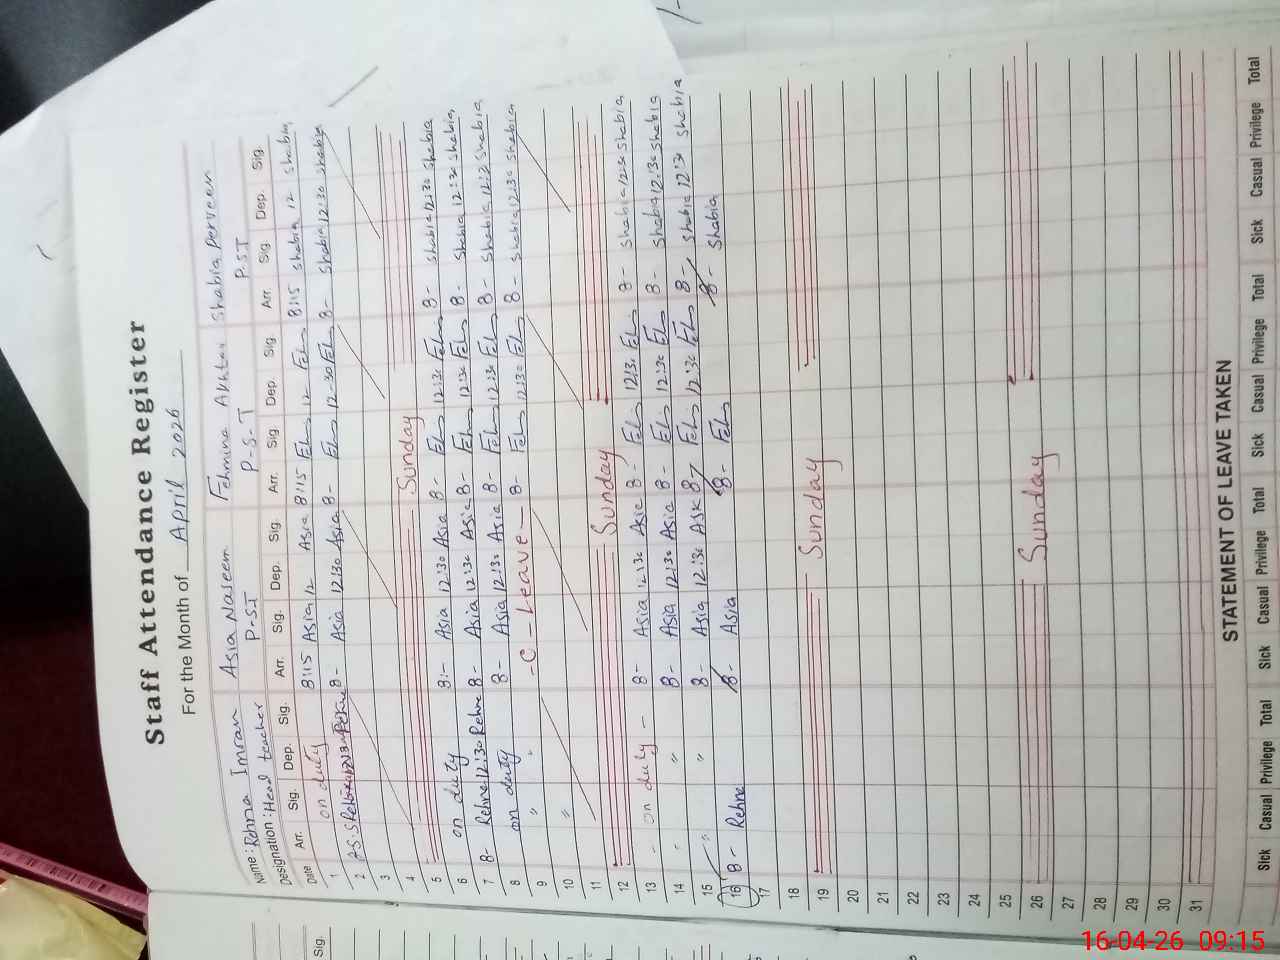 Staff Attendance Register
For the Month of April 2026
Name: Rehna Imran Asia Naseem Fehmina Akhtar Shabia Perveen
Designation: Head teacher P-ST P-S-T P.ST
Date Arr. Sig. Dep. Sig. Arr. Sig. Dep. Sig. Arr. Sig Dep. Sig. Arr. Sig. Dep. Sig.
1 on duty 8:15 Asia 12 Asia 8:15 12 8:15 shabia 12 shabia
2 8- Asia 12:30 Asia 8- 12:30 8- shabia 12:30 shabia
3
4
5 Sunday
6 on duty 8:- Asia 12:30 Asia 8- 12:30 8- shabia 12:30 shabia
7 8- Rehne 12:30 Rehne 8- Asia 12:30 Asia 8- 12:30 8- shabia 12:30 shabia
8 on duty 8- Asia 12:30 Asia 8- 12:30 8- shabia 12:30 shabia
9 " " - C - Leave - 8- 12:30 8- shabia 12:30 shabia
10 "
11
12 Sunday
13 - on duty - 8- Asia 12:30 Asia 8- 12:30 8- shabia 12:30 shabia
14 " " 8- Asia 12:30 Asia 8- 12:30 8- shabia 12:30 shabia
15 " " 8- Asia 12:30 Asia 8- 12:30 8- shabia 12:30 shabia
16 8- Rehne 8- Asia 8- 8- Shabia
17
18
19 Sunday
20
21
22
23
24
25
26 Sunday
27
28
29
30
31
STATEMENT OF LEAVE TAKEN
Sick Casual Privilege Total Sick Casual Privilege Total Sick Casual Privilege Total Sick Casual Privilege Total
Sig.
16-04-26 09:15